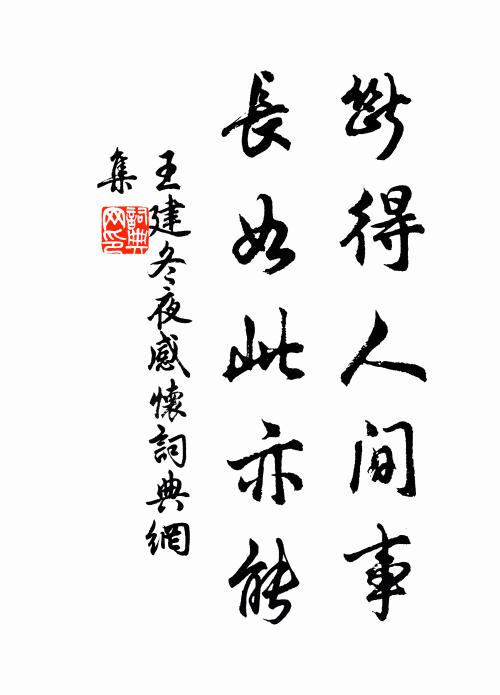 斷得人間事
長如此亦能
王建冬夜感懷詞典網
集
詞典
网印